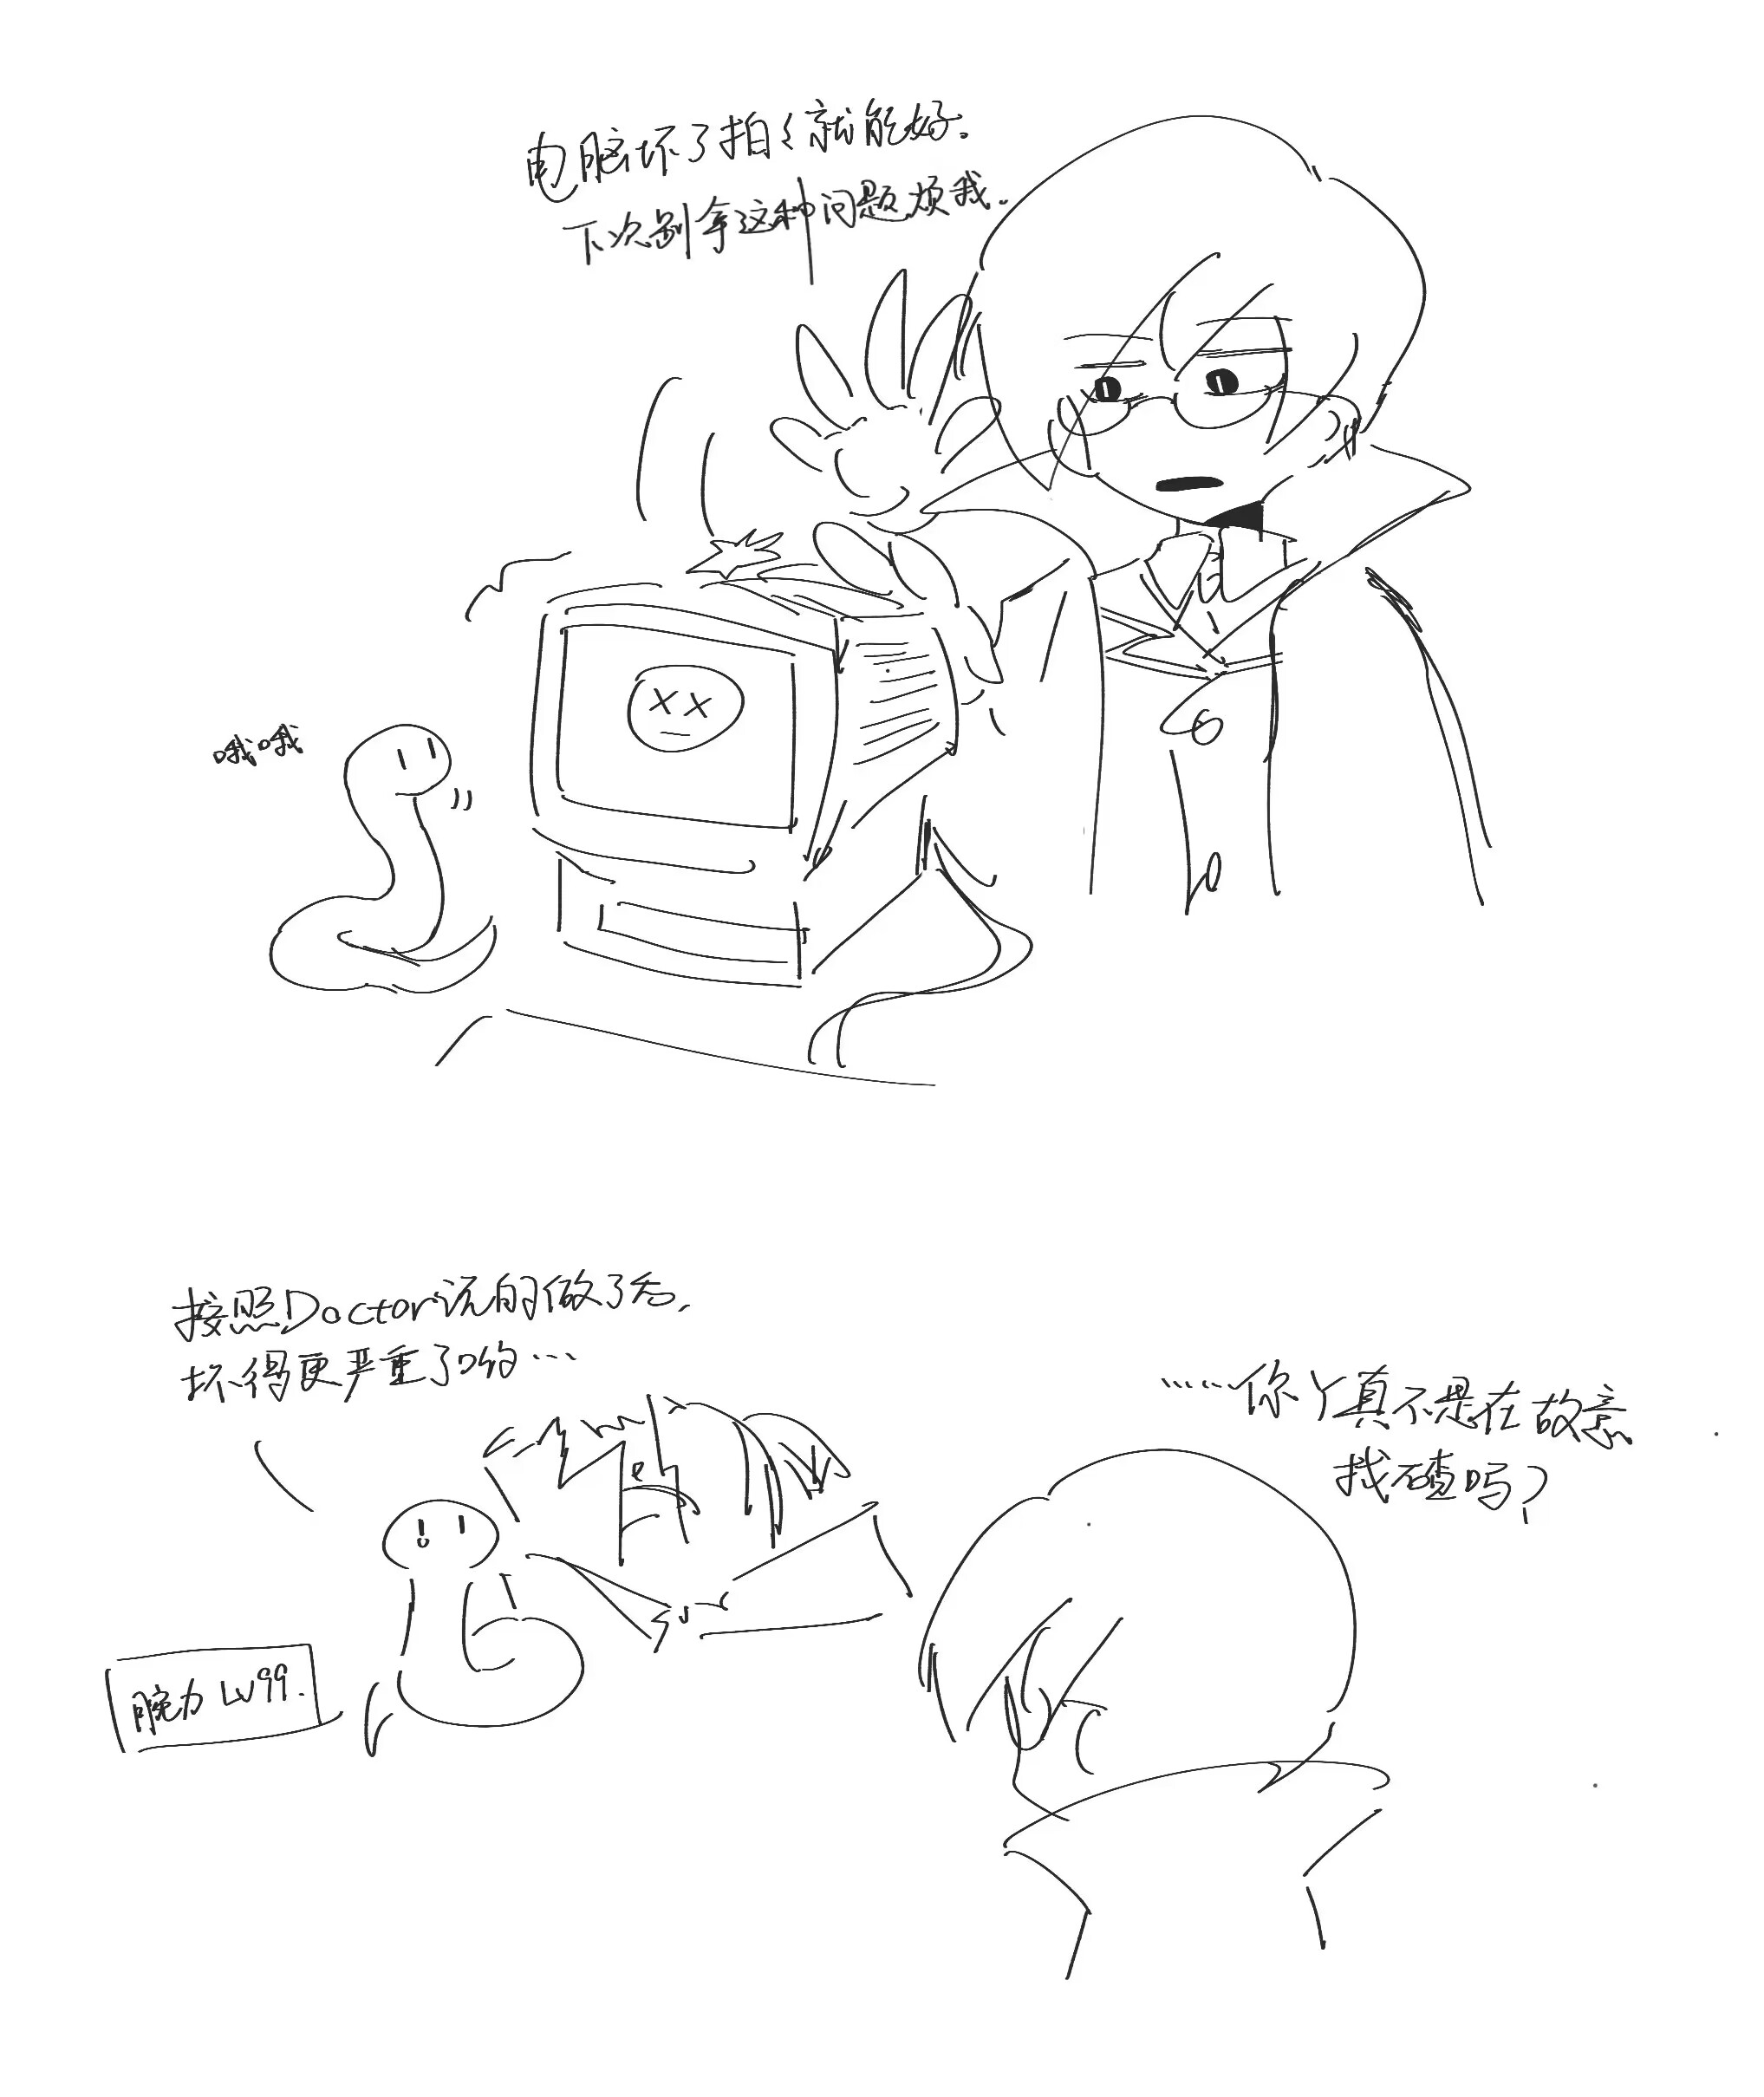 电脑坏了拍々就能好.
下次别拿这种问题烦我.
哦哦
按照Doctor说的做了后,
坏得更严重了哟…
……你丫真不是在故意
找碴吗?
腕力 LV99.